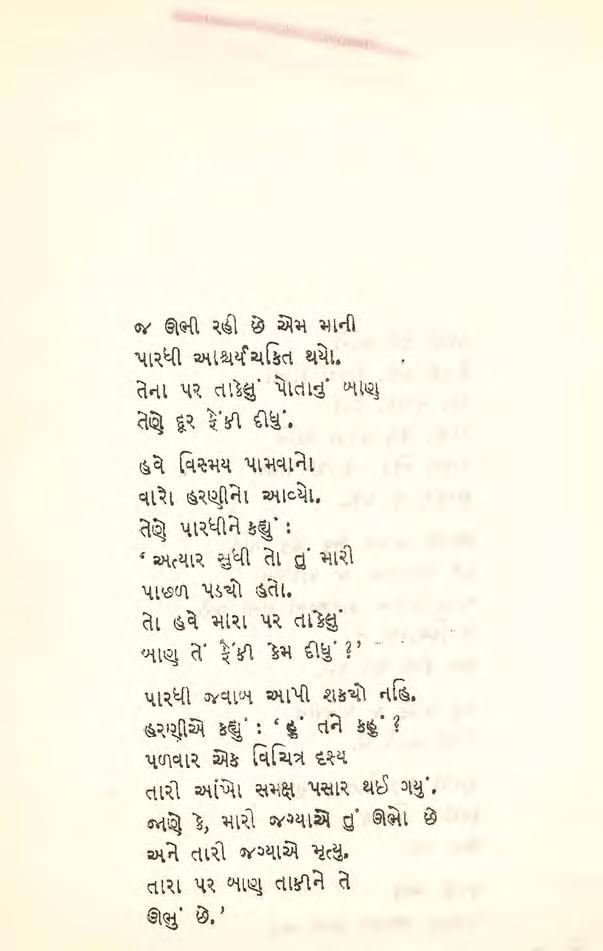 જ ઊભી રહી છે એમ માની
પારધી આશ્ચર્યચકિત થયો.
તેના પર તાકેલું પોતાનું બાણ
તેણે દૂર ફેંકી દીધું.
હવે વિસ્મય પામવાનો
વારો હરણીનો આવ્યો.
તેણે પારધીને કહ્યું :
‘ અત્યાર સુધી તો તું મારી
પાછળ પડયો હતો.
તો હવે મારા પર તાકેલું
બાણ તેં ફેંકી કેમ દીધું ?’
પારધી જવાબ આપી શકયો નહિ.
હરણીએ કહ્યું : ‘ હું તને કહું ?
પળવાર એક વિચિત્ર દૃશ્ય
તારી આંખો સમક્ષ પસાર થઈ ગયું.
જાણે કે, મારી જગ્યાએ તું ઊભો છે
અને તારી જગ્યાએ મૃત્યુ.
તારા પર બાણ તાકીને તે
ઊભું છે.’